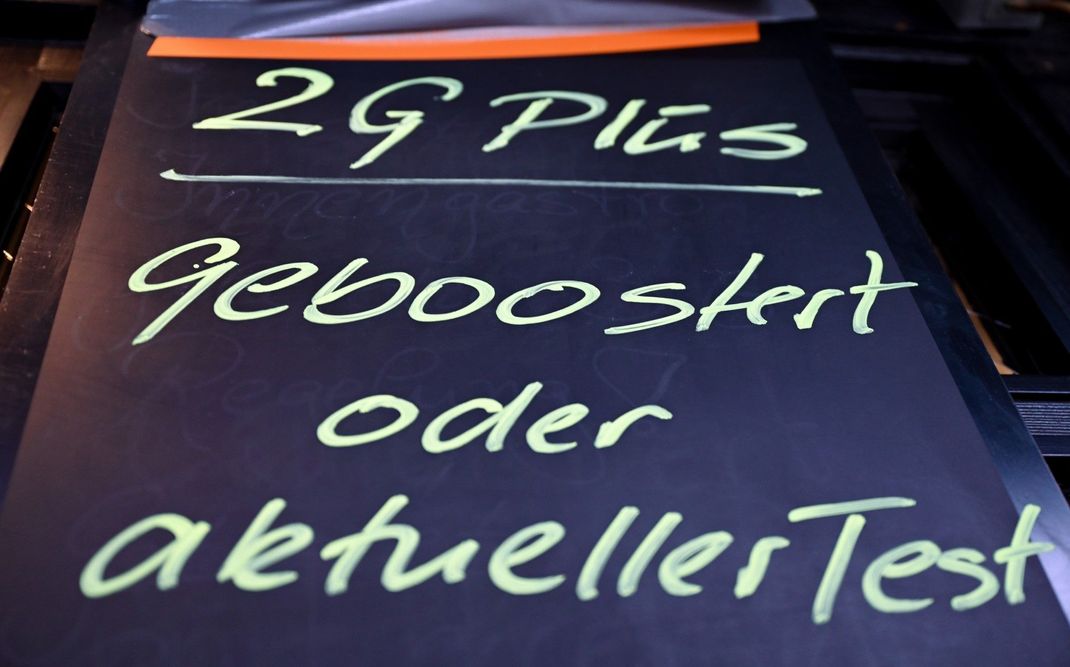 2G Plus
Geboostert
oder
aktueller Test